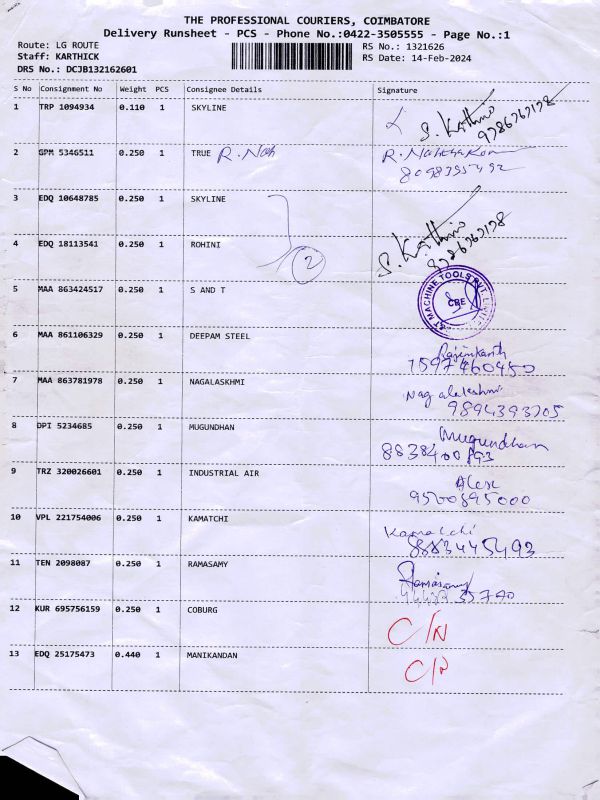 THE PROFESSIONAL COURIERS, COIMBATORE
Delivery Runsheet - PCS - Phone No.:0422-3505555 - Page No.:1
Route: LG ROUTE
Staff: KARTHICK
DRS No.: DCJB132162601
RS No.: 1321626
RS Date: 14-Feb-2024
S No Consignment No Weight PCS Consignee Details Signature
1 TRP 1094934 0.110 1 SKYLINE
2 GPM 5346511 0.250 1 TRUE R. Nath
8098395492
3 EDQ 10648785 0.250 1 SKYLINE
4 EDQ 18113541 0.250 1 ROHINI
2
5 MAA 863424517 0.250 1 S AND T
MACHINE TOOLS PVT.
CBE
6 MAA 861106329 0.250 1 DEEPAM STEEL Rajinikanth
7597460450
7 MAA 863781978 0.250 1 NAGALASKHMI Nagalakshmi
9894393205
8 DPI 5234685 0.250 1 MUGUNDHAN Mugundhan
9 TRZ 320026601 0.250 1 INDUSTRIAL AIR Alex
9500895000
10 VPL 221754006 0.250 1 KAMATCHI Kamatchi
8883445493
11 TEN 2098087 0.250 1 RAMASAMY Ramasamy
12 KUR 695756159 0.250 1 COBURG C/N
13 EDQ 25175473 0.440 1 MANIKANDAN